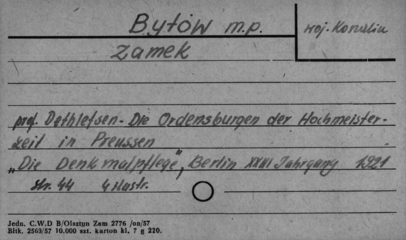 Bytów m.p.
woj. Koszalin
zamek
prof. Dethlefsen - Die Ordensburgen der Hochmeister-
zeit in Preussen
„Die Denkmalpflege", Berlin XXIII Jahrgang 1921
str. 44 4 ilustr.
Jedn. C.W.D B/Olsztyn Zam 2776 /on/57
Bltk. 2563/57 10.000 szt. karton kl. 7 g 220.